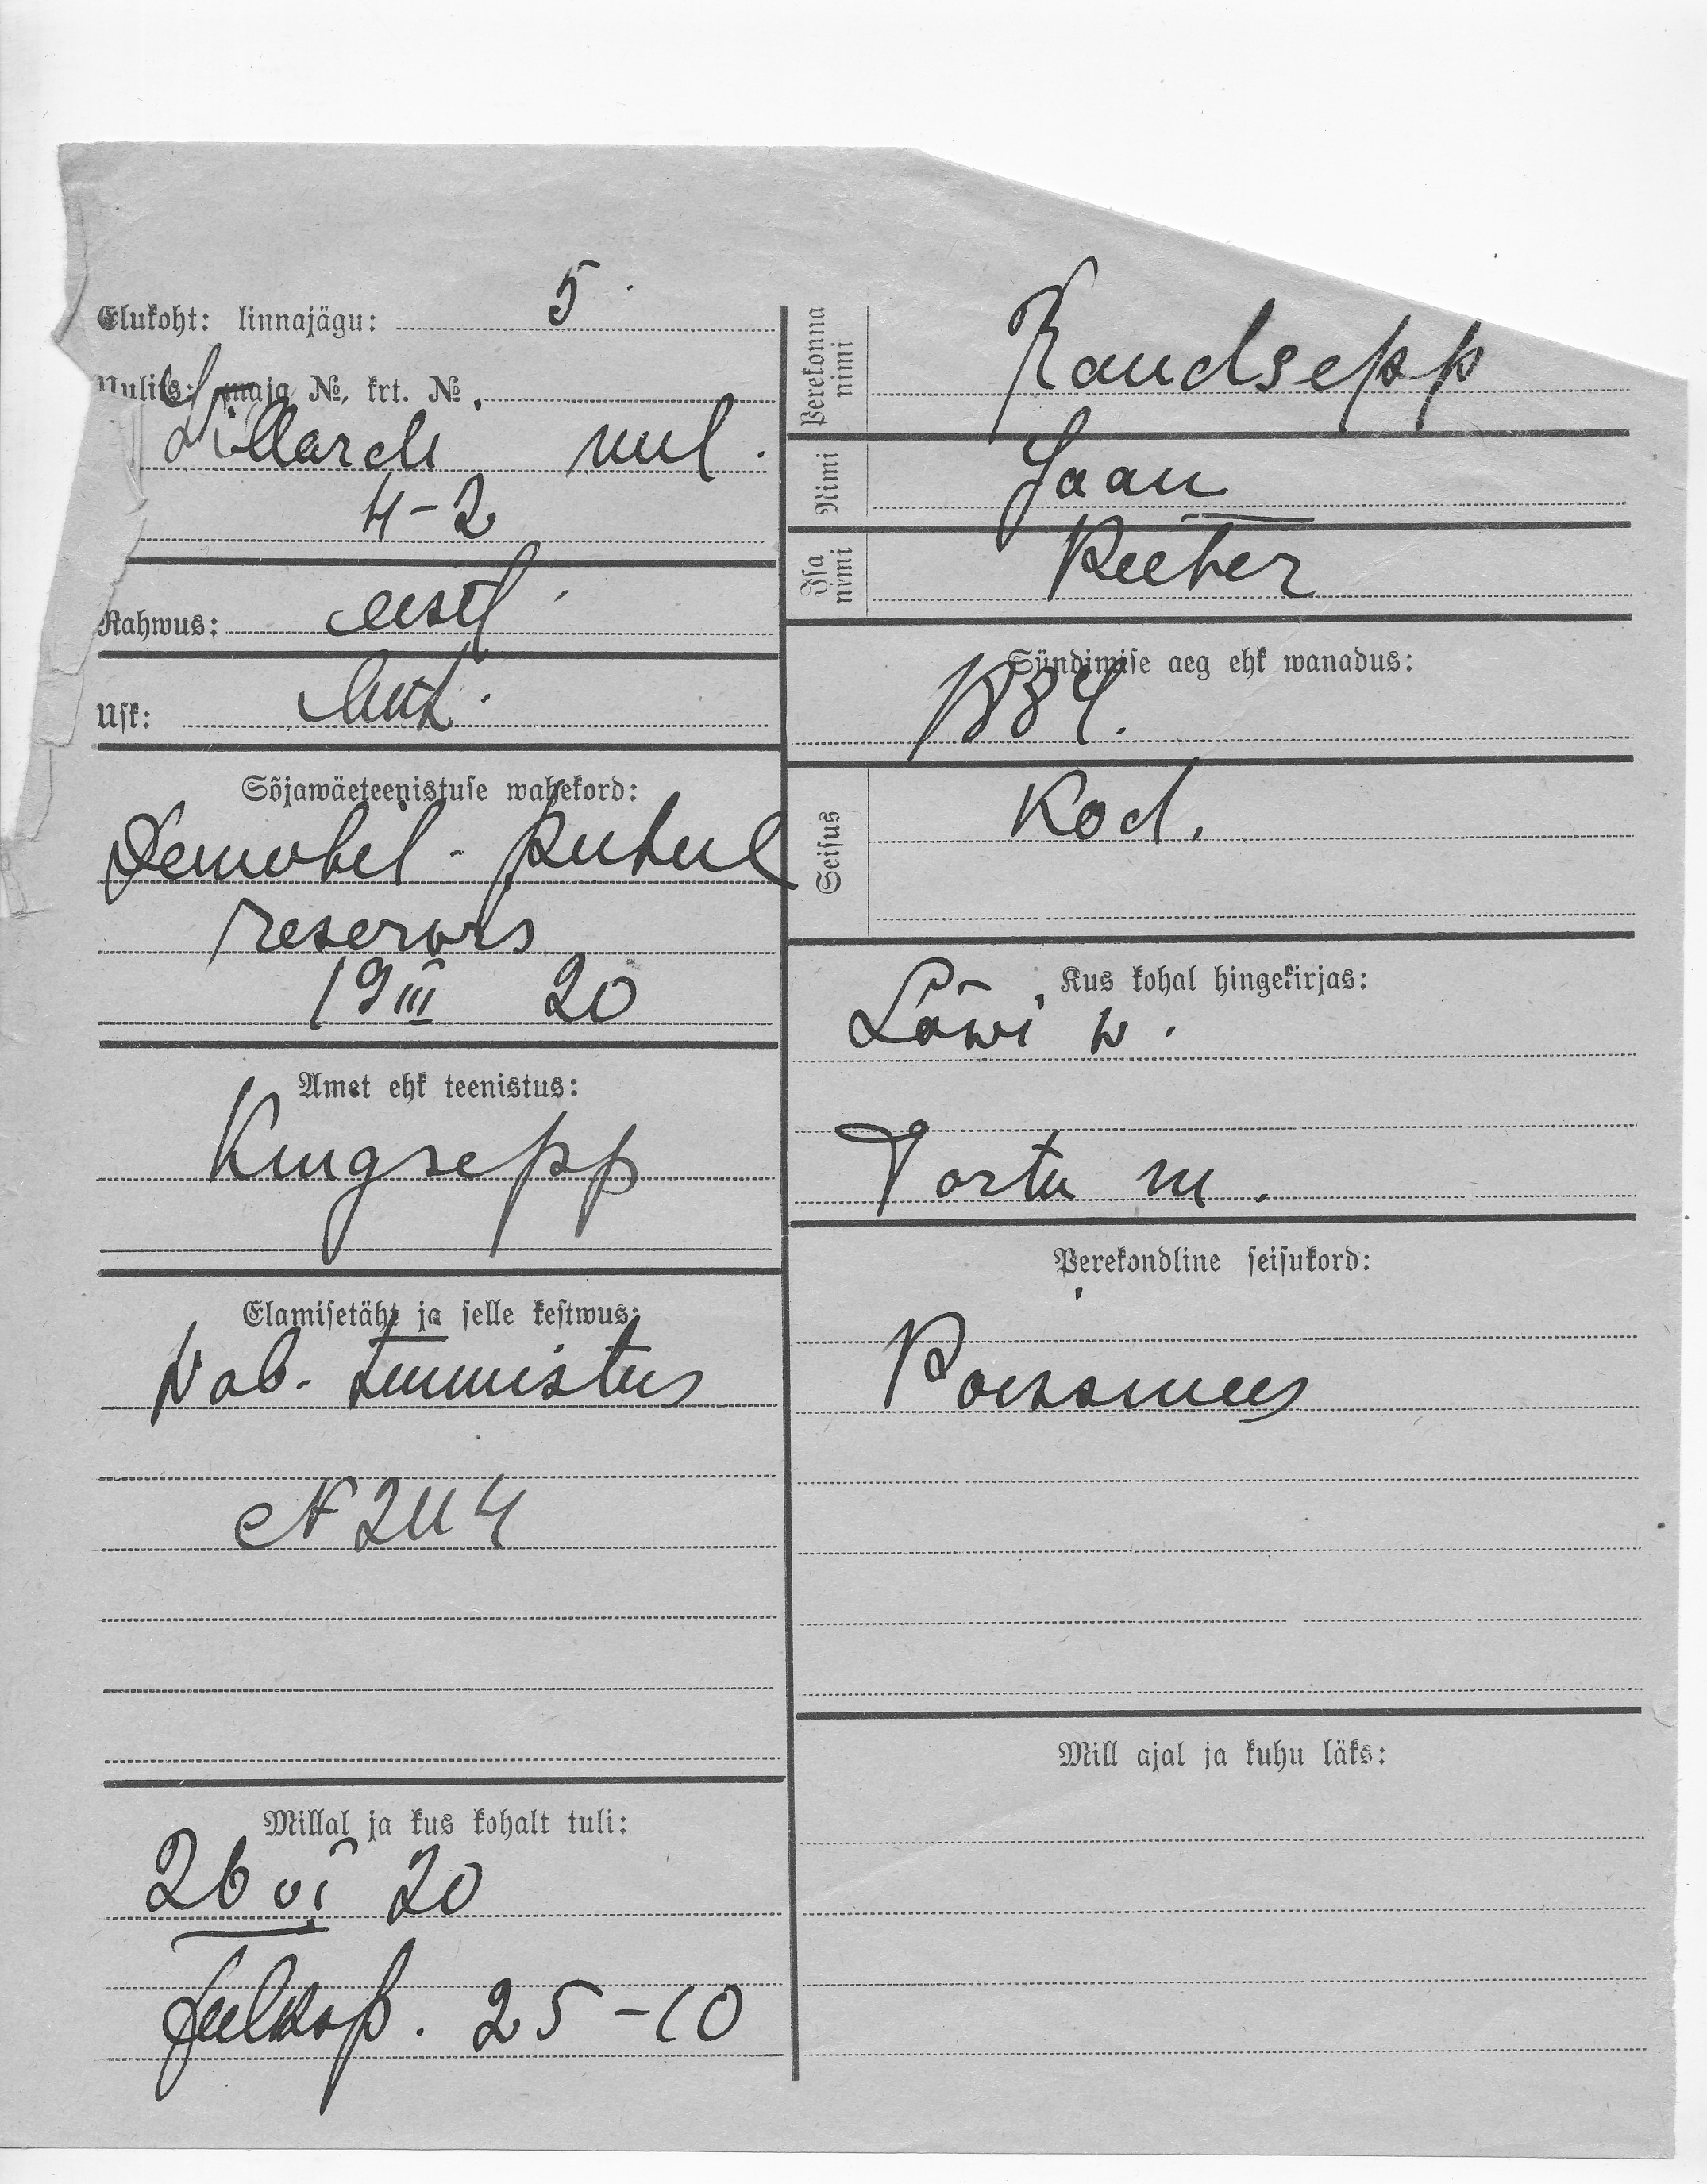 Elukoht: linnajagu: 5
Uulits: maja №, krt. №
Lillardi uul.
4-2
Rahwus: eestl
Usk: Lut.
Sõjawäeteenistuse wahekord:
Demobel-
reserwis
19 III 20
Amet ehk teenistus:
Kingsepp
Elamisetäht ja selle kestwus:
Wab. tunnistus
№ 244
Millal ja kus kohalt tuli:
26 VI 20
25-10
Perekonna nimi
Raudsepp
Nimi
Jaan
Isa nimi
Peeter
Sündimise aeg ehk wanadus:
1884.
Seisus
Kod.
Kus kohal hingekirjas:
Lõwi w.
Tartu m.
Perekondline seisukord:
Poissmees
Mill ajal ja kuhu läks: